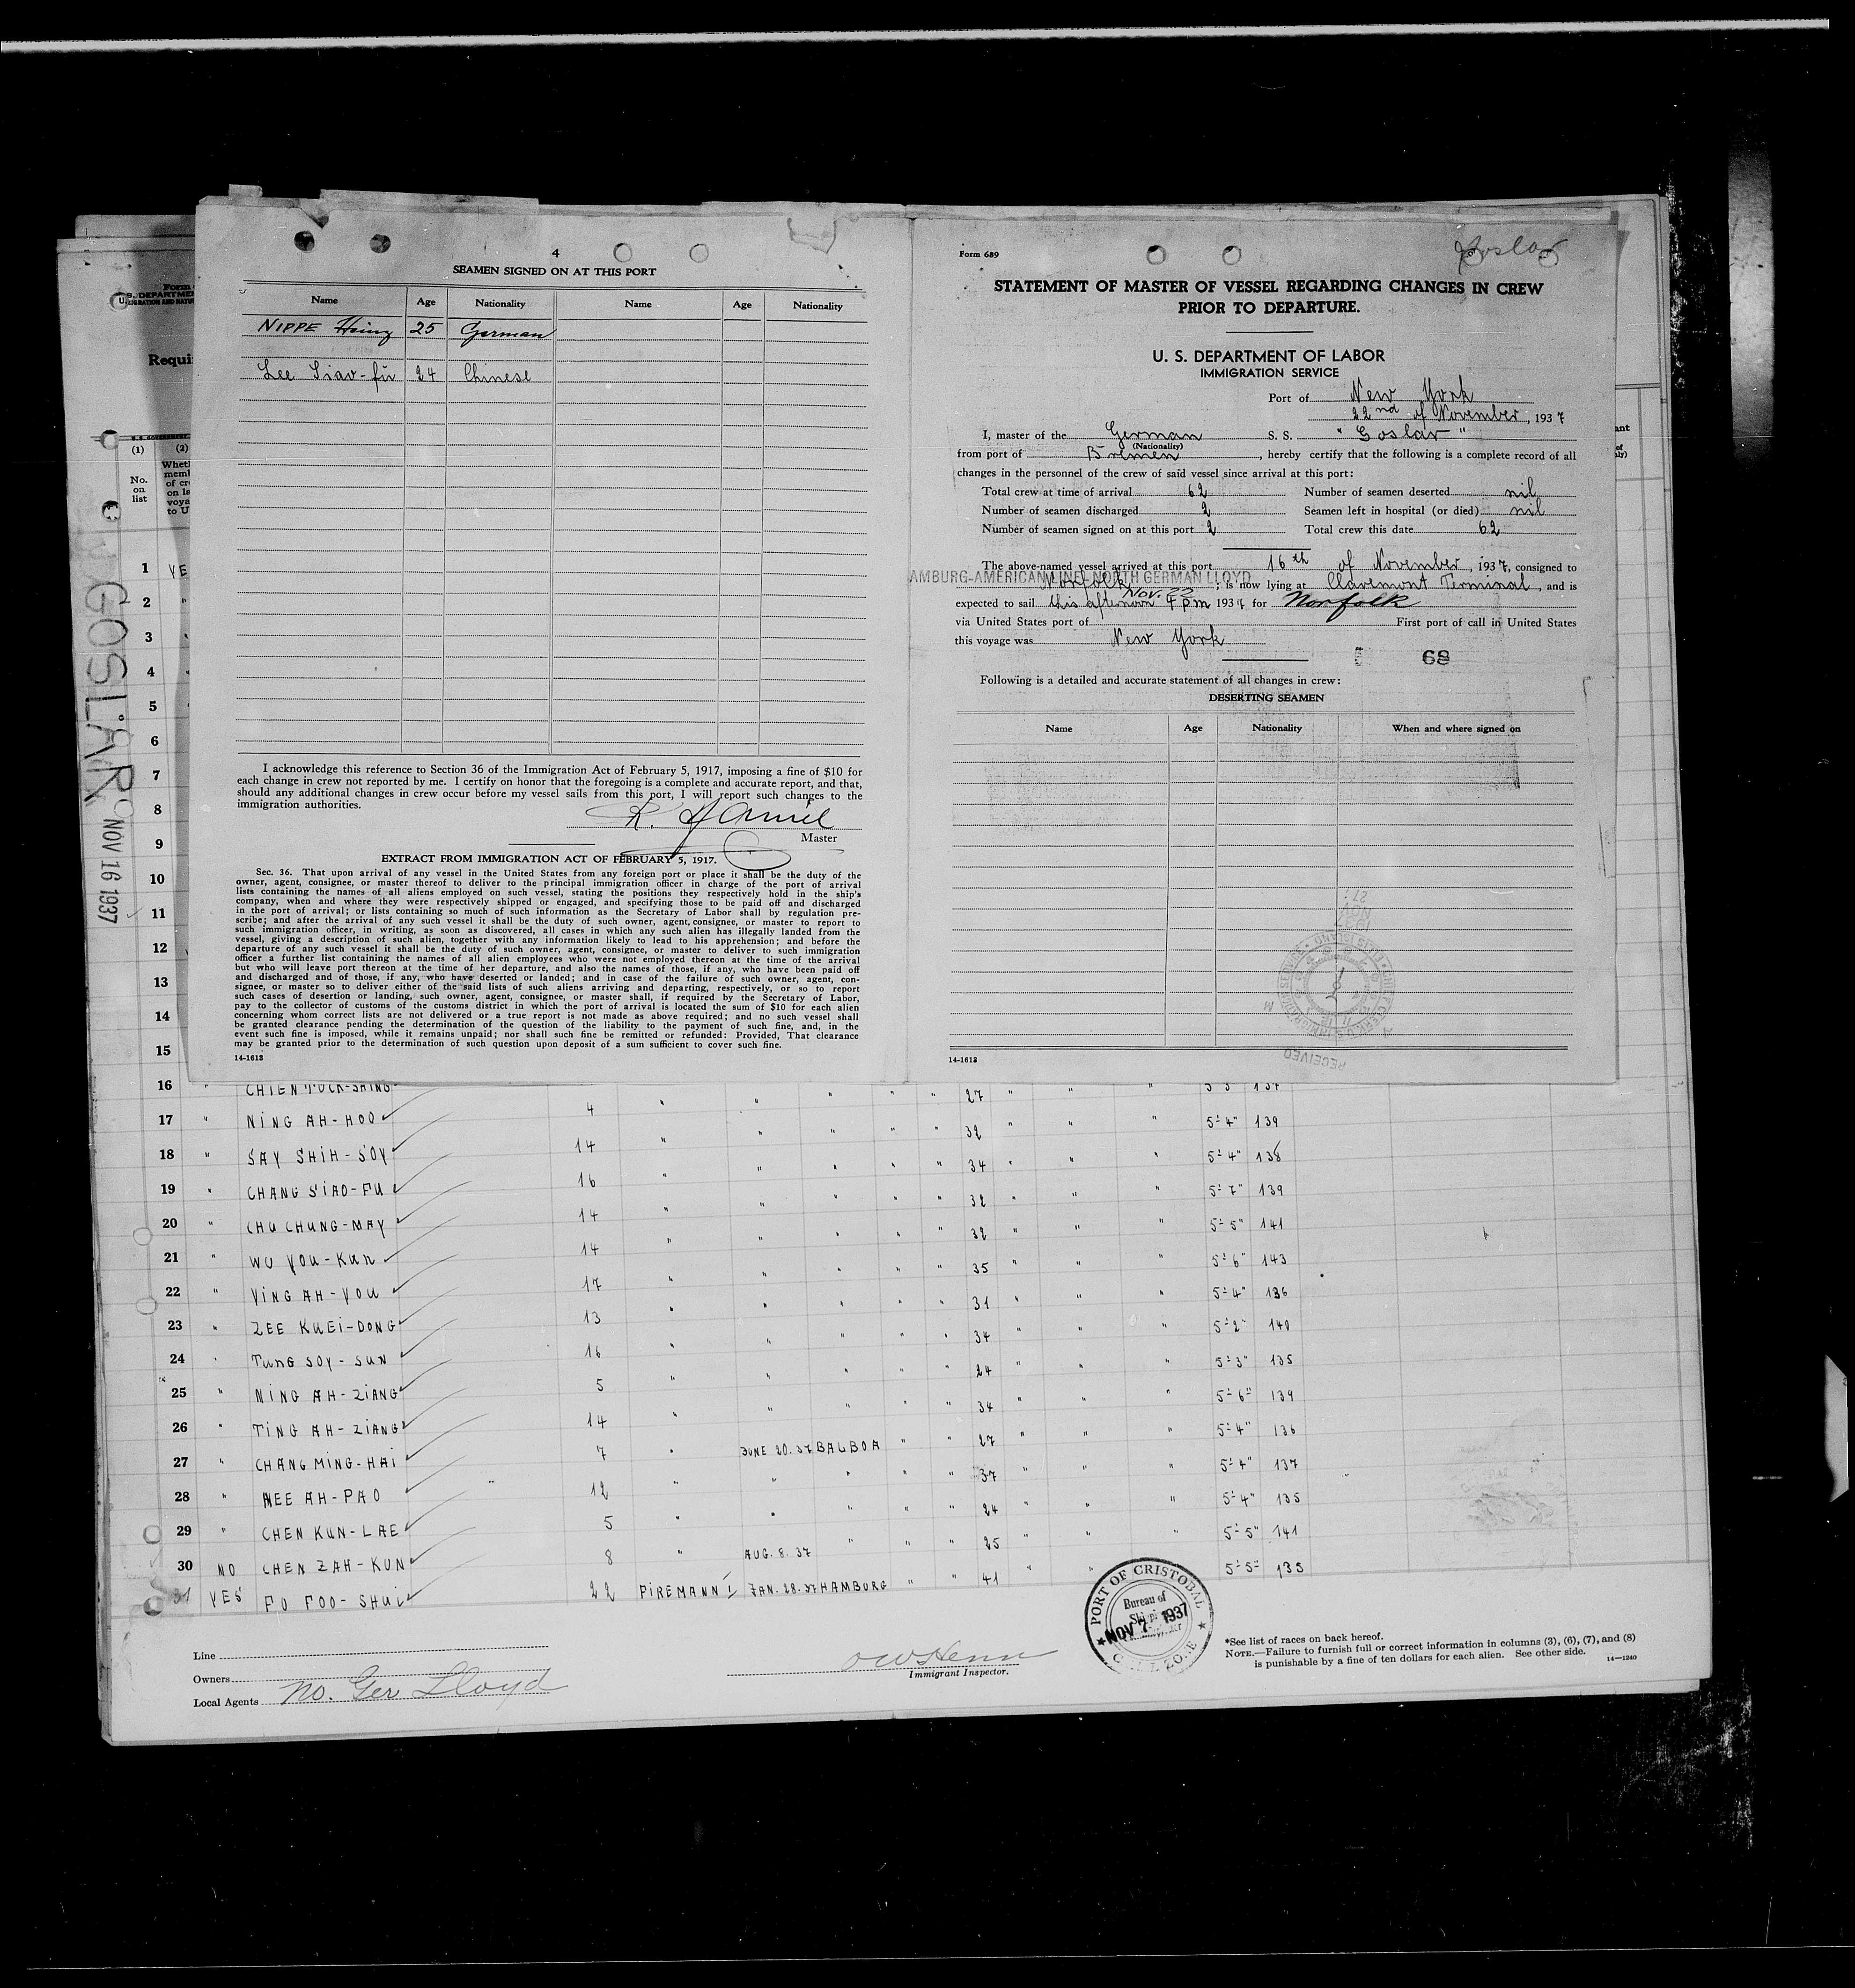 4
SEAMEN SIGNED ON AT THIS PORT
Name Age Nationality Name Age Nationality
NIPPE Heinz 25 German
Lee Siao-fu 24 Chinese
I acknowledge this reference to Section 36 of the Immigration Act of February 5, 1917, imposing a fine of $10 for
each change in crew not reported by me. I certify on honor that the foregoing is a complete and accurate report, and that,
should any additional changes in crew occur before my vessel sails from this port, I will report such changes to the
immigration authorities.
Master
EXTRACT FROM IMMIGRATION ACT OF FEBRUARY 5, 1917.
Sec. 36. That upon arrival of any vessel in the United States from any foreign port or place it shall be the duty of the
owner, agent, consignee, or master thereof to deliver to the principal immigration officer in charge of the port of arrival
lists containing the names of all aliens employed on such vessel, stating the positions they respectively hold in the ship's
company, when and where they were respectively shipped or engaged, and specifying those to be paid off and discharged
in the port of arrival; or lists containing so much of such information as the Secretary of Labor shall by regulation pre-
scribe; and after the arrival of any such vessel it shall be the duty of such owner, agent, consignee, or master to report to
such immigration officer, in writing, as soon as discovered, all cases in which any such alien has illegally landed from the
vessel, giving a description of such alien, together with any information likely to lead to his apprehension; and before the
departure of any such vessel it shall be the duty of such owner, agent, consignee, or master to deliver to such immigration
officer a further list containing the names of all alien employees who were not employed thereon at the time of the arrival
but who will leave port thereon at the time of her departure, and also the names of those, if any, who have been paid off
and discharged and of those, if any, who have deserted or landed; and in case of the failure of such owner, agent, con-
signee, or master so to deliver either of the said lists of such aliens arriving and departing, respectively, or so to report
such cases of desertion or landing, such owner, agent, consignee, or master shall, if required by the Secretary of Labor,
pay to the collector of customs of the customs district in which the port of arrival is located the sum of $10 for each alien
concerning whom correct lists are not delivered or a true report is not made as above required; and no such vessel shall
be granted clearance pending the determination of the question of the liability to the payment of such fine, and, in the
event such fine is imposed, while it remains unpaid; nor shall such fine be remitted or refunded: Provided, That clearance
may be granted prior to the determination of such question upon deposit of a sum sufficient to cover such fine.
14-1613
Form 689
Goslar
STATEMENT OF MASTER OF VESSEL REGARDING CHANGES IN CREW
PRIOR TO DEPARTURE.
U. S. DEPARTMENT OF LABOR
IMMIGRATION SERVICE
Port of New York
22nd of November, 1937
I, master of the German S. S. "Goslar"
(Nationality)
from port of Bremen, hereby certify that the following is a complete record of all
changes in the personnel of the crew of said vessel since arrival at this port:
Total crew at time of arrival 62 Number of seamen deserted nil
Number of seamen discharged 2 Seamen left in hospital (or died) nil
Number of seamen signed on at this port 2 Total crew this date 62
The above-named vessel arrived at this port 16th of November, 1937, consigned to
AMBURG-AMERICAN LINE-NORTH GERMAN LLOYD
Norfolk; is now lying at Claremont Terminal, and is
Nov. 22
expected to sail this afternoon 4 pm 1937 for Norfolk
via United States port of First port of call in United States
this voyage was New York
68
Following is a detailed and accurate statement of all changes in crew:
DESERTING SEAMEN
Name Age Nationality When and where signed on
RECEIVED
14-1613
Requi
(1) (2)
No.
on
list
GOSLAR
NOV 16 1937
1 YE
2 "
3
4
5
6
7
8
9
10
11
12
13
14
15
16 " CHIEN YUCK-SHING " " " " " 27 " " " 5'3" 137
17 " NING AH-HOO 4 " " " " " 32 " " " 5'4" 139
18 " SAY SHIH-SOY 14 " " " " " 34 " " " 5'4" 138
19 " CHANG SIAO-FU 16 " " " " " 32 " " " 5'7" 139
20 " CHU CHUNG-MAY 14 " " " " " 32 " " " 5'5" 141
21 " WU YOU-KUN 14 " " " " " 35 " " " 5'6" 143
22 " YING AH-YOU 17 " " " " " 31 " " " 5'4" 136
23 " ZEE KUEI-DONG 13 " " " " " 34 " " " 5'2" 140
24 " TUNG SOY-SUN 16 " " " " " 24 " " " 5'3" 135
25 " NING AH-ZIANG 5 " " " " " 34 " " " 5'6" 139
26 " TING AH-ZIANG 14 " JUNE 20.37 BALBOA " " 27 " " " 5'4" 136
27 " CHANG MING-HAI 7 " " " " " 37 " " " 5'4" 137
28 " NEE AH-PAO 12 " " " " " 24 " " " 5'4" 135
29 " CHEN KUN-LAE 5 " " " " " 25 " " " 5'5" 141
30 NO CHEN ZAH-KUN 8 " AUG. 8. 37 " " " 41 " " 5'5" 135
31 YES FU FOO-SHUI 22 FIREMANN I JAN. 28.37 HAMBURG " "
Line
Owners
Local Agents No. Ger Lloyd
Immigrant Inspector.
PORT OF CRISTOBAL
Bureau of
NOV 7 - 1937
*See list of races on back hereof.
NOTE.—Failure to furnish full or correct information in columns (3), (6), (7), and (8)
is punishable by a fine of ten dollars for each alien. See other side.
14-1240